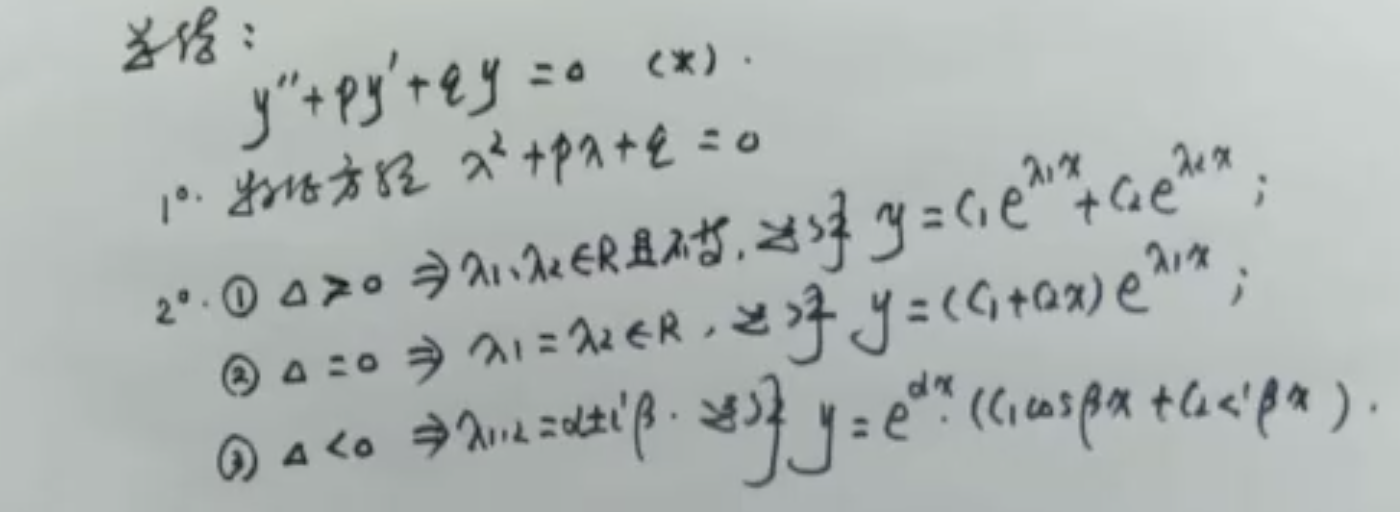 总结:
y''+py'+qy=0 (*).
1°. 特征方程 λ²+pλ+q=0
2°. ① Δ>0 ⇒ λ₁、λ₂∈R且不等, 通解 y=C₁e^{λ₁x}+C₂e^{λ₂x};
② Δ=0 ⇒ λ₁=λ₂∈R, 通解 y=(C₁+C₂x)e^{λ₁x};
③ Δ<0 ⇒ λ₁,₂=α±iβ. 通解 y=e^{αx}·(C₁cosβx+C₂ βx).